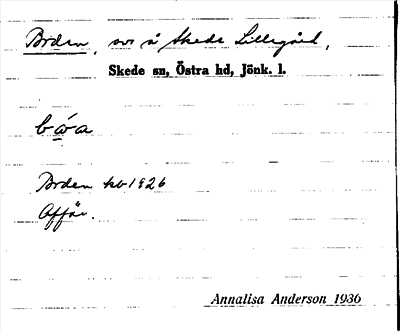 Borden, s. o. å Skede Lillegård,
Skede sn, Östra hd, Jönk. l.
bẃa
Borden kb 1826
Affär.
Annalisa Anderson 1936